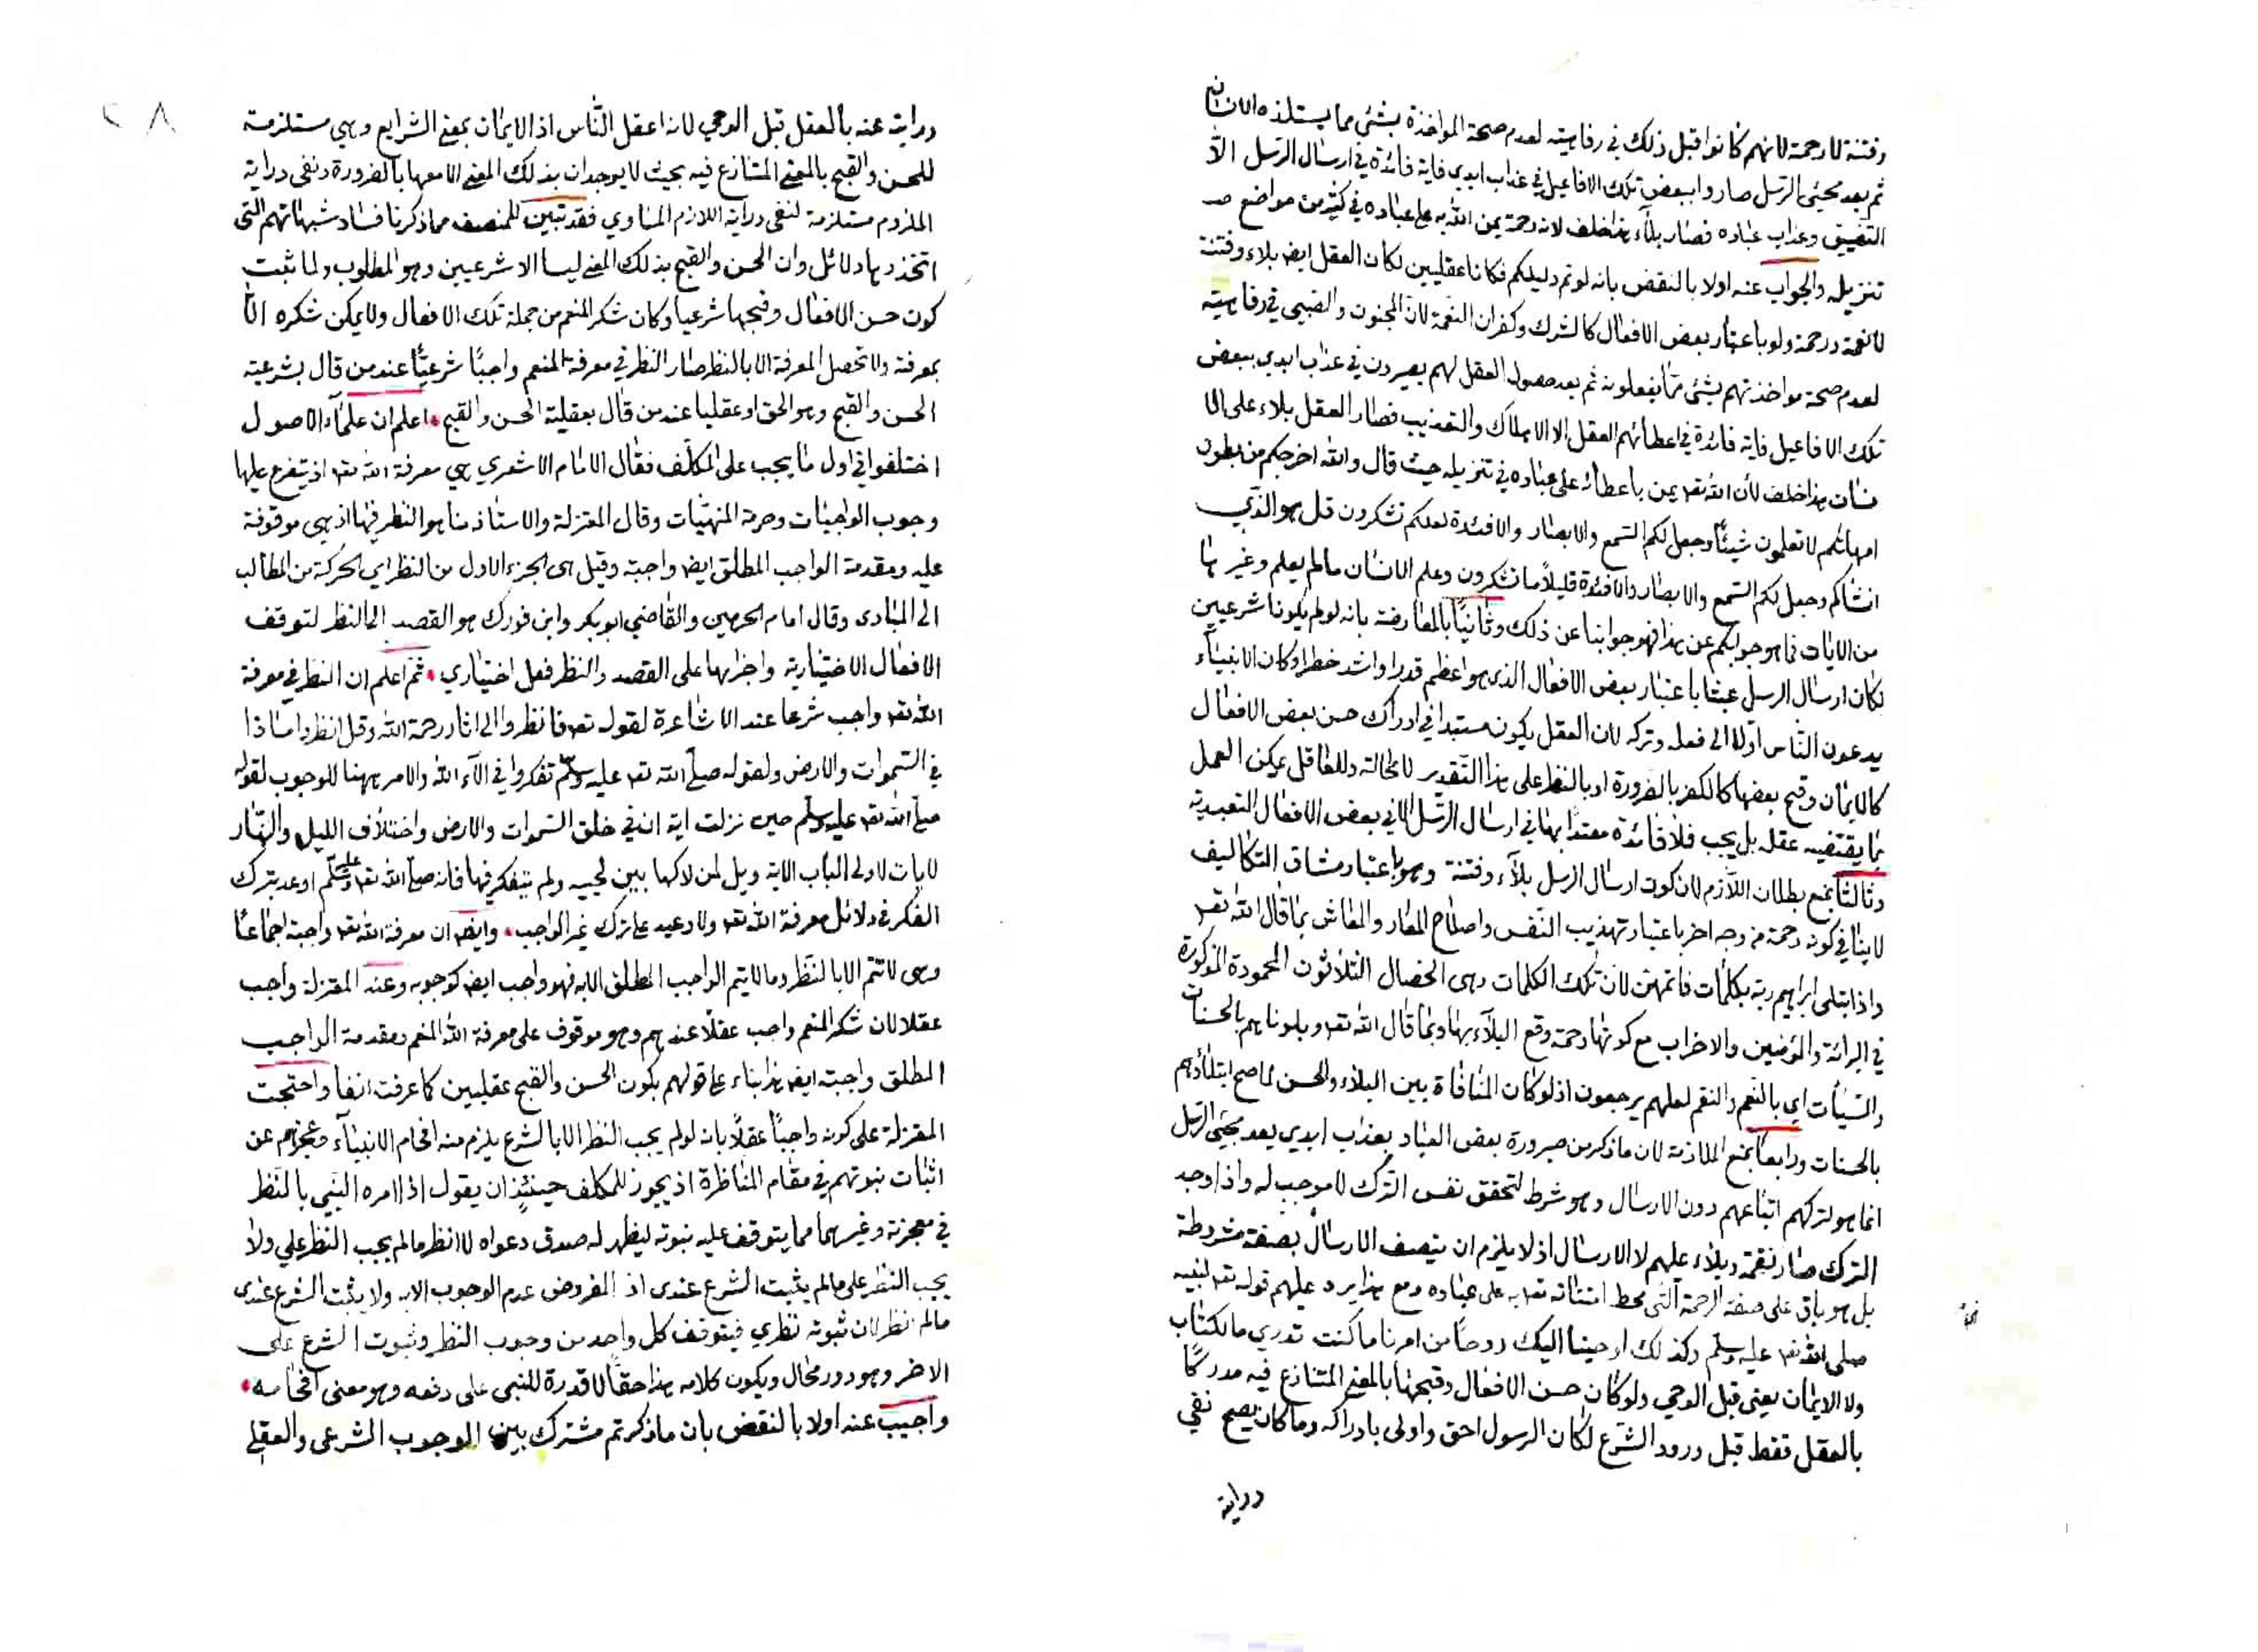 وفتنة لا رحمة لانهم كانوا قبل ذلك في رفاهيته لعدم صحة المواخذة بشئ مما يستلذه الانسان
ثم بعد مجيئ الرسل صاروا ببعض تلك الافاعيل في عذاب ابدي فاية فائدة في ارسال الرسل الا
التضييق وعذاب عباده فصار بلاء هذا خلف لانه رحمة يمن الله به على عباده في كثير من مواضع
تنزيله والجواب عنه اولا بالنقض بانه لو تم دليلكم فكانا عقليين لكان العقل ايض بلاء وفتنة
لا نعمة ورحمة ولو باعتبار بعض الافعال كالشرك وكفران النعمة لان المجنون والصبي في رفاهيته
لعدم صحة مواخذتهم بشئ مما يفعلونه ثم بعد حصول العقل لهم يصيرون في عذاب ابدي ببعض
تلك الافاعيل فاية فائدة في اعطائهم العقل الا الاهلاك والتعذيب فصار العقل بلاء على الا
نسان هذا خلف لأن الله تعه يمن باعطائه على عباده في تنزيله حيث قال والله اخرجكم من بطون
امهاتكم لا تعلمون شيئا وجعل لكم السمع والابصار والافئدة لعلكم تشكرون قل هو الذي
انشاكم وجعل لكم السمع والابصار والافئدة قليلا ما تشكرون وعلم الانسان مالم يعلم وغيرها
من الايات فما هو جوابكم عن هذا فهو جوابنا عن ذلك وثانيا بالمعارضة بانه لو لم يكونا شرعيين
لكان ارسال الرسل عبثا باعتبار بعض الافعال الذي هو اعظم قدرا واشد خطرا وكان الانبياء
يدعون الناس اولا الى فعله وتركه لان العقل يكون مستبدا في ادراك حسن بعض الافعال
كالايمان وقبح بعضها كالكفر بالضرورة او بالنظر على هذا التقدير لا محالة وللعاقل يمكن العمل
بما يقتضيه عقله بل يجب فلا فائدة معتدا بها في ارسال الرسل الا في بعض الافعال التعبدية
وثالثا بمنع بطلان اللازم لان كون ارسال الرسل بلاء وفتنة وهو باعتبار مشاق التكاليف
لا ينافي كونه رحمة من وجه اخر باعتبار تهذيب النفس واصلاح المعاد والمعاش بما قال الله تعه
واذ ابتلى ابراهيم ربه بكلمات فاتمهن لان تلك الكلمات وهى الخصال الثلاثون المحمودة المذكورة
في البرائة والمؤمنين والاحزاب مع كونها رحمة وقع البلاء بها وبما قال الله تعه وبلوناهم بالحسنات
والسيئات اي بالنعم والنقم لعلهم يرجعون اذ لو كان المنافاة بين البلاء والحسن لما صح ابتلاؤهم
بالحسنات ورابعا بمنع الملازمة لان ما ذكر من صيرورة بعض العباد بعذاب ابدي بعد مجيئ الرسل
انما هو لتركهم اتباعهم دون الارسال وهو شرط لتحقق نفس الترك لا موجب له واذا وجد
الترك صار نقمة وبلاء عليهم لا الارسال اذ لا يلزم ان يتصف الارسال بصفة مشروطة
بل هو باق على صفة الرحمة التى محط امتنانه تعه به على عباده ومع هذا يرد عليهم قوله تعه لنبيه
صلى الله تعه عليه وسلم وكذلك اوحينا اليك روحا من امرنا ما كنت تدري ما الكتاب
ولا الايمان يعنى قبل الوحي ولو كان حسن الافعال وقبحها بالمعنى المتنازع فيه مدركا
بالعقل فقط قبل ورود الشرع لكان الرسول احق واولى بادراكه وما كان يصح نفي
دراية
٢٨
دراية عنه بالعقل قبل الوحي لانه اعقل الناس اذ الايمان بمعنى الشرايع وهي مستلزمة
للحسن والقبح بالمعنى المتنازع فيه بحيث لا يوجدان بذلك المعنى الا معها بالضرورة ونفى دراية
الملزوم مستلزمة لنفى دراية اللازم المساوي فقد تبين للمنصف مما ذكرنا فساد شبهاتهم التى
اتخذوها دلائل وان الحسن والقبح بذلك المعنى ليسا الا شرعيين وهو المطلوب ولما ثبت
كون حسن الافعال وقبحها شرعيا وكان شكر المنعم من جملة تلك الافعال ولا يمكن شكره الا
بمعرفته ولا تحصل المعرفة الا بالنظر صار النظر في معرفة المنعم واجبا شرعيا عند من قال بشرعية
الحسن والقبح وهو الحق او عقليا عند من قال بعقلية الحسن والقبح اعلم ان علماء الاصول
اختلفوا في اول ما يجب على المكلف فقال الامام الاشعري هي معرفة الله تعه اذ يتفرع عليها
وجوب الواجبات وحرمة المنهيات وقال المعتزلة والاستاذ منا هو النظر فيها اذ هى موقوفة
عليه ومقدمة الواجب المطلق ايض واجبة وقيل هى الجزء الاول من النظر اي الحركة من المطالب
الى المبادى وقال امام الحرمين والقاضي ابو بكر وابن فورك هو القصد الى النظر لتوقف
الافعال الاختيارية واجزائها على القصد والنظر فعل اختياري ثم اعلم ان النظر في معرفة
الله تعه واجب شرعا عند الاشاعرة لقوله تعه فانظروا الى اثار رحمة الله وقل انظروا ماذا
في السموات والارض ولقوله صلى الله تعه عليه وسلم تفكروا في الآء الله والامر ههنا للوجوب لقوله
صلى الله تعه عليه وسلم حين نزلت اية ان في خلق السموات والارض واختلاف الليل والنهار
لايات لاولى الباب الاية ويل لمن لاكها بين لحييه ولم يتفكر فيها فانه صلى الله تعه عليه وسلم اوعد بترك
الفكر في دلائل معرفة الله تعه ولا وعيد على ترك غير الواجب وايض ان معرفة الله تعه واجبة اجماعا
وهى لا تتم الا بالنظر وما لا يتم الواجب المطلق الا به فهو واجب ايض كوجوبه وعند المعتزلة واجب
عقلا لان شكر المنعم واجب عقلا عندهم وهو موقوف على معرفة الله المنعم ومقدمة الواجب
المطلق واجبة ايض هذا بناء على قولهم بكون الحسن والقبح عقليين كما عرفت انفا واحتجت
المعتزلة على كونه واجبا عقلا بانه لو لم يجب النظر الا بالشرع يلزم منه افحام الانبياء وعجزهم عن
اثبات نبوتهم في مقام المناظرة اذ يجوز للمكلف حينئذ ان يقول اذا امره النبي بالنظر
في معجزته وغيرهما مما يتوقف عليه نبوته ليظهر له صدق دعواه لا انظر ما لم يجب النظر علي ولا
يجب النظر على مالم يثبت الشرع عندى اذ المفروض عدم الوجوب الا به ولا يثبت الشرع عندى
مالم انظر لان ثبوته نظري فيتوقف كل واحد من وجوب النظر وثبوت الشرع على
الاخر وهو دور محال ويكون كلامه هذا حقا لا قدرة للنبى على دفعه وهو معنى افحامه
واجيب عنه اولا بالنقض بان ما ذكرتم مشترك بين الوجوب الشرعى والعقلي